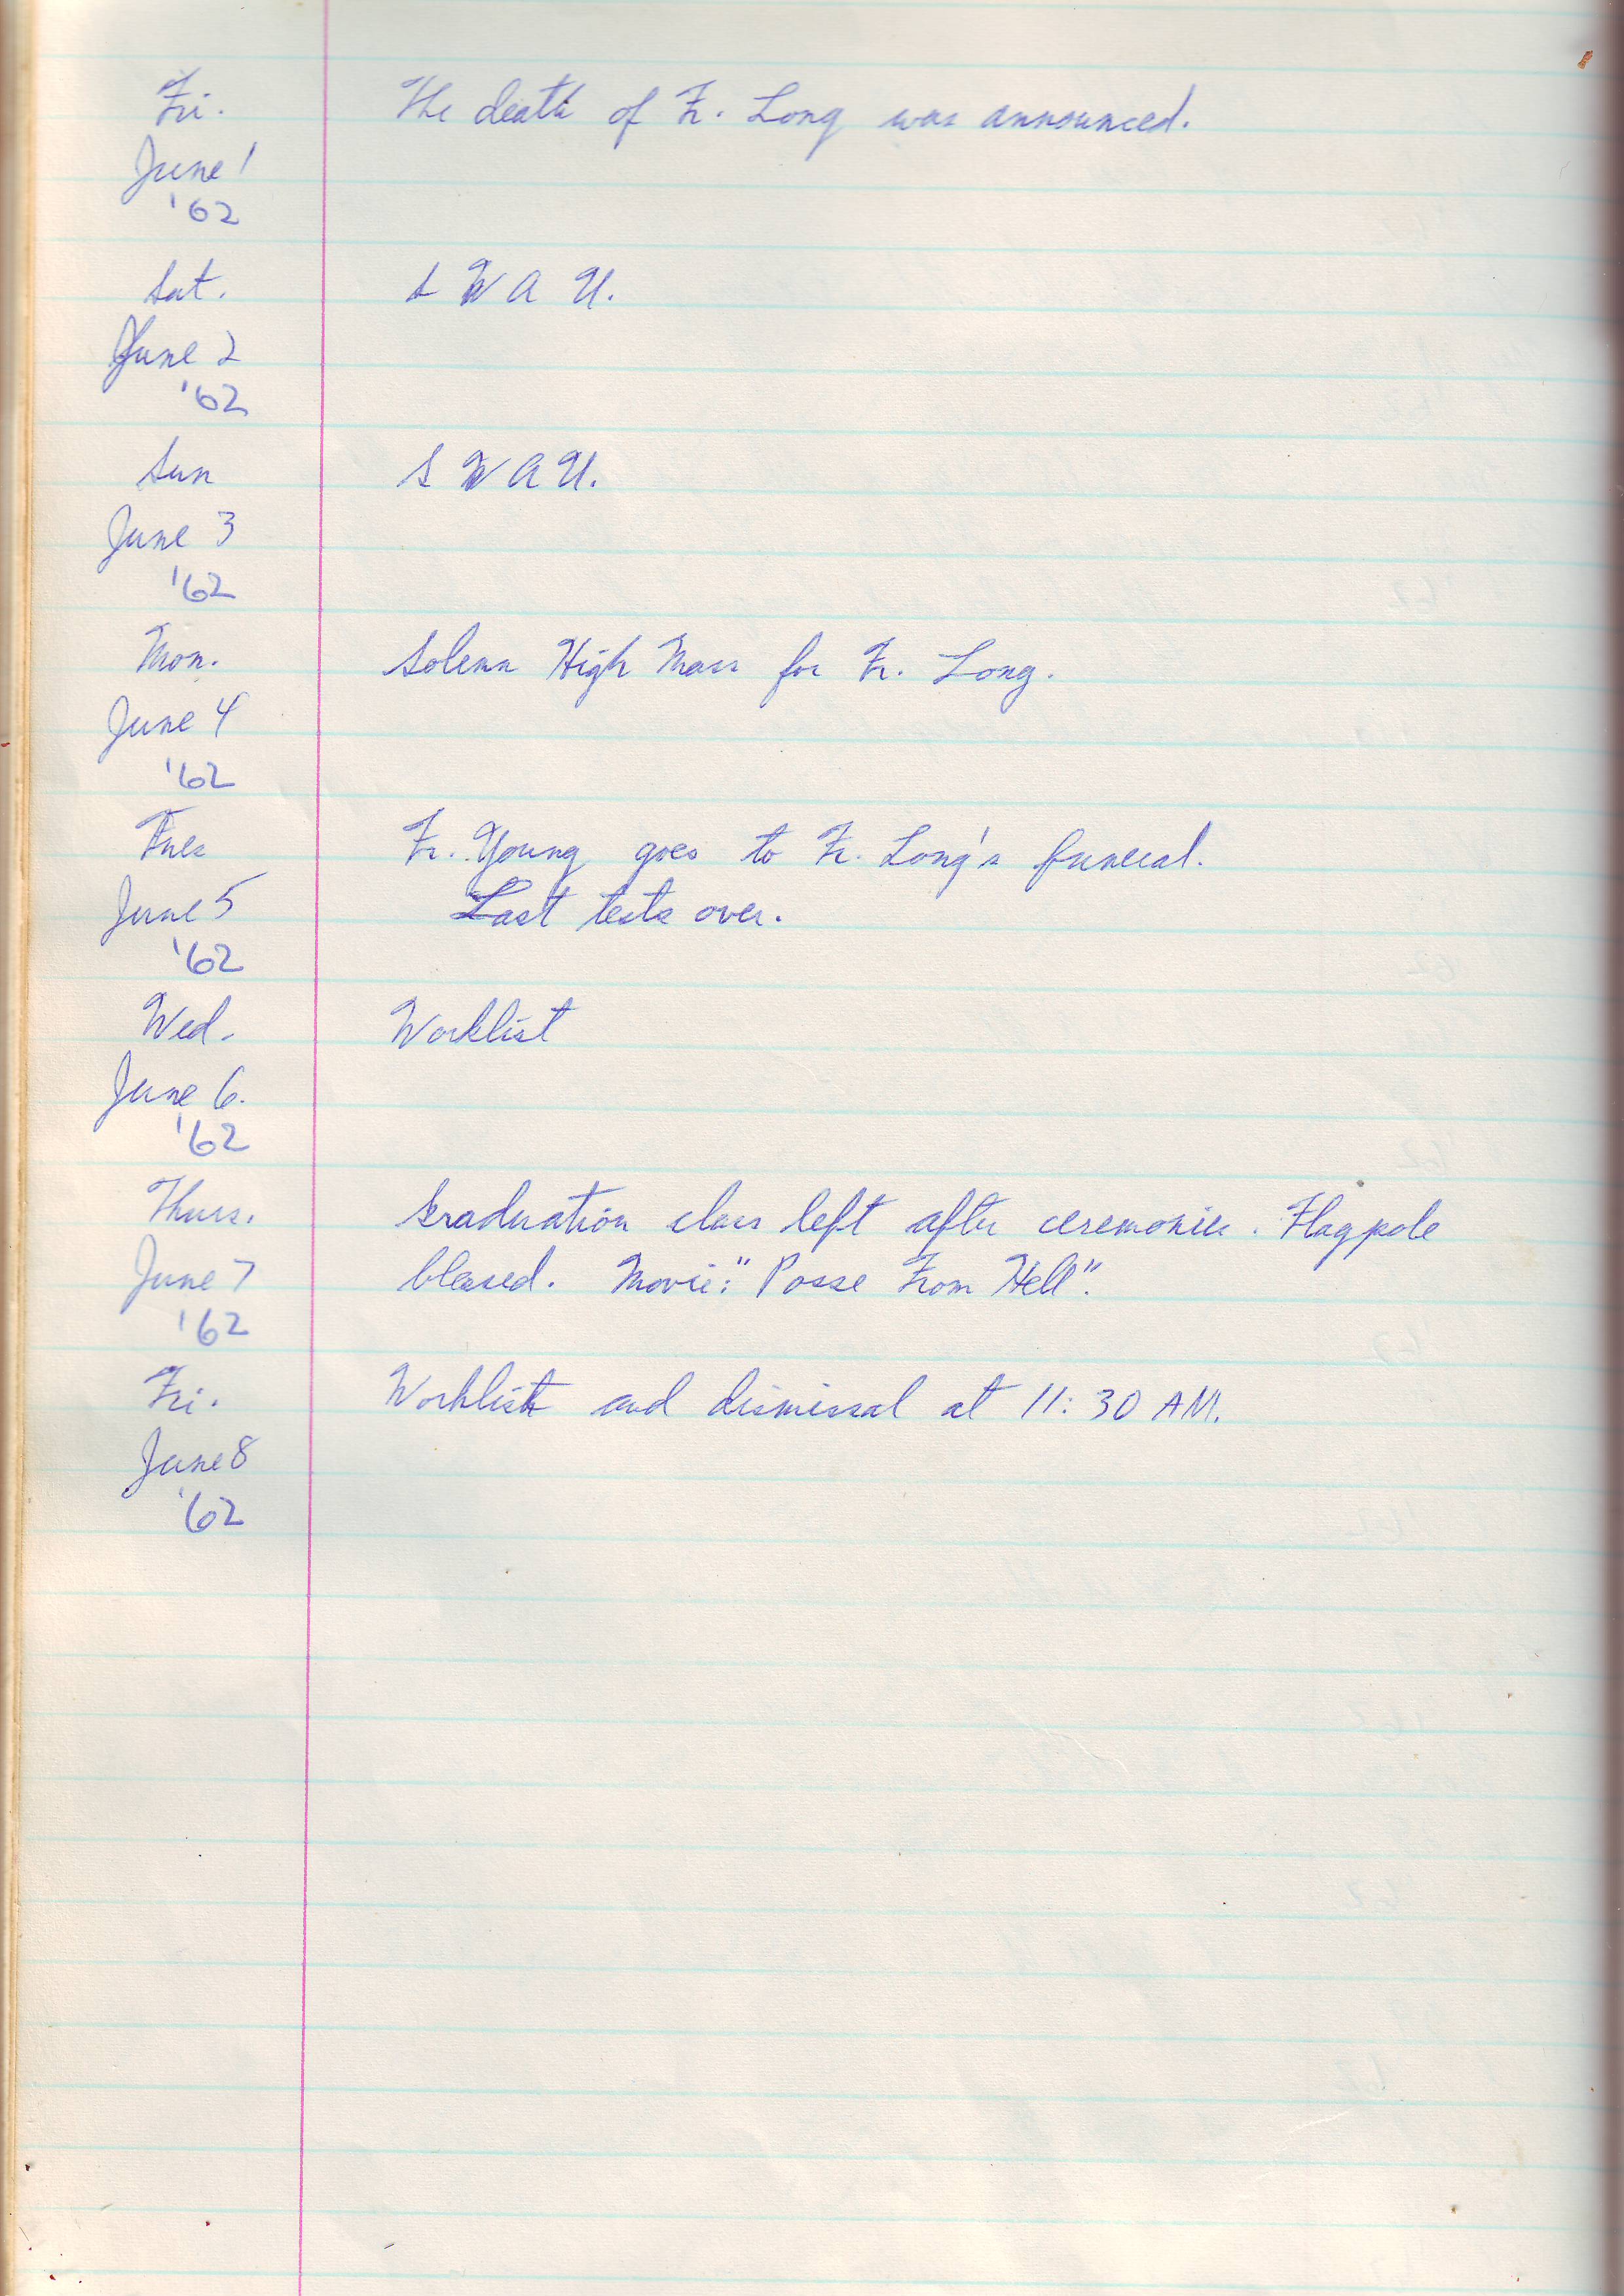 Fri. The death of Fr. Long was announced.
June 1
'62
Sat. S W A U.
June 2
'62
Sun S W A U.
June 3
'62
Mon. Solemn High Mass for Fr. Long.
June 4
'62
Tues Fr. Young goes to Fr. Long's funeral.
June 5 Last tests over.
'62
Wed. Worklist
June 6.
'62
Thurs. Graduation class left after ceremonies. Flagpole
June 7 blessed. Movie: "Posse From Hell".
'62
Fri. Worklist and dismissal at 11:30 AM.
June 8
'62